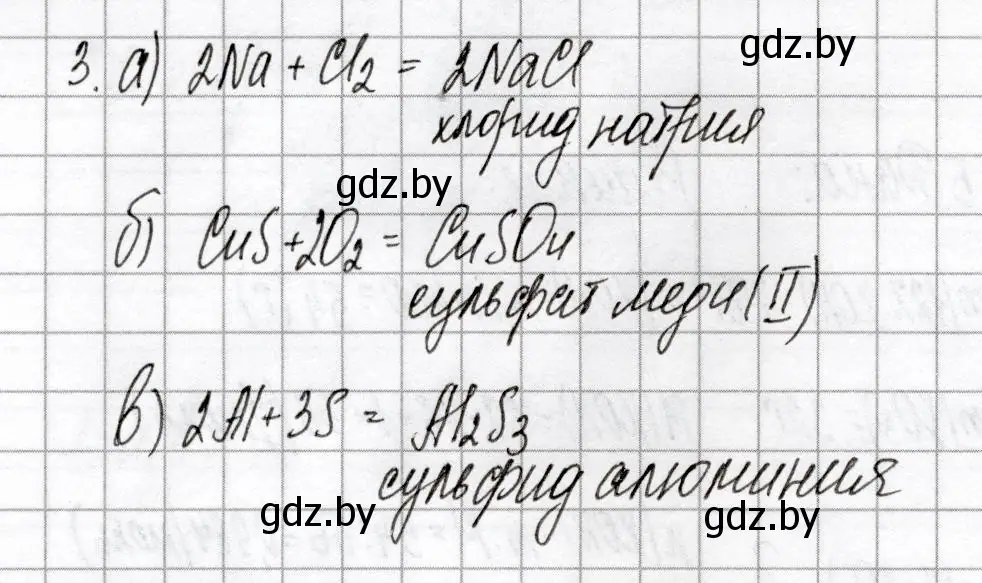 gdz.by
3. а) 2Na + Cl₂ = 2NaCl
хлорид натрия
gdz.by
б) CuS + 2O₂ = CuSO₄
сульфат меди (II)
в) 2Al + 3S = Al₂S₃
сульфид алюминия
gdz.by
gdz.by